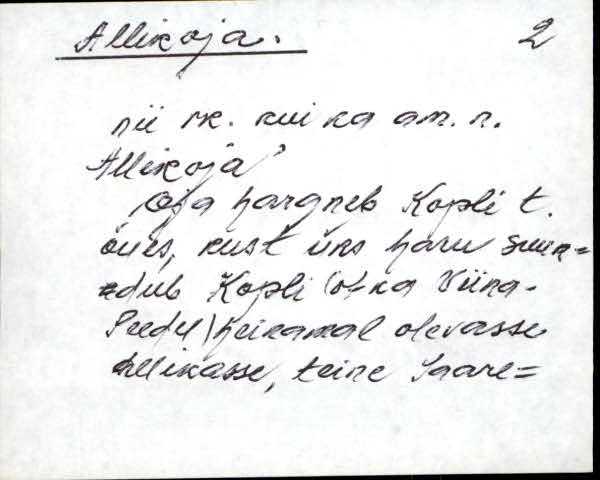 Allikoja. 2
nii rk. kui ka am. n.
Allikoja'
Oja hargneb Kopli t.
õues, kust üks haru suun=
dub Kopli (ot ka Viina-
Peedu) heinamal olevasse
allikasse, teine Saare=